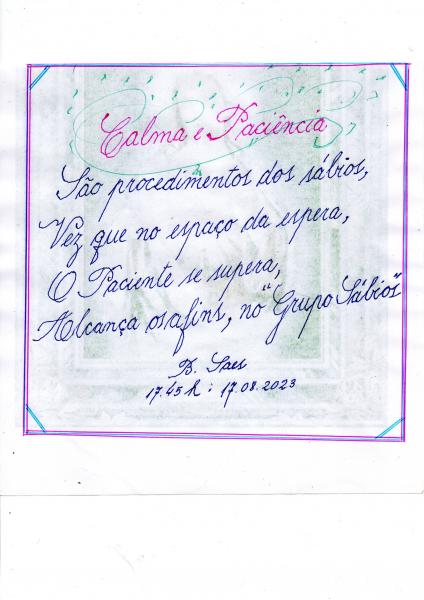 Calma e Paciência
São procedimentos dos sábios,
Vez que no espaço da espera,
O Paciente se supera,
Alcança os afins, no "Grupo Sábios"
B. Saes
17.45h : 17.08.2023